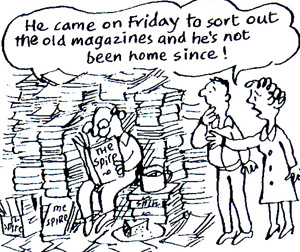 He came on Friday to sort out
the old magazines and he's not
been home since!
THE
SPIRE
THE
SPIRE
SPIRE